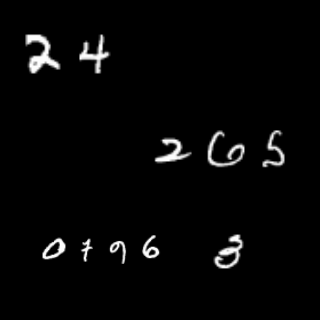 24
265
0796 3